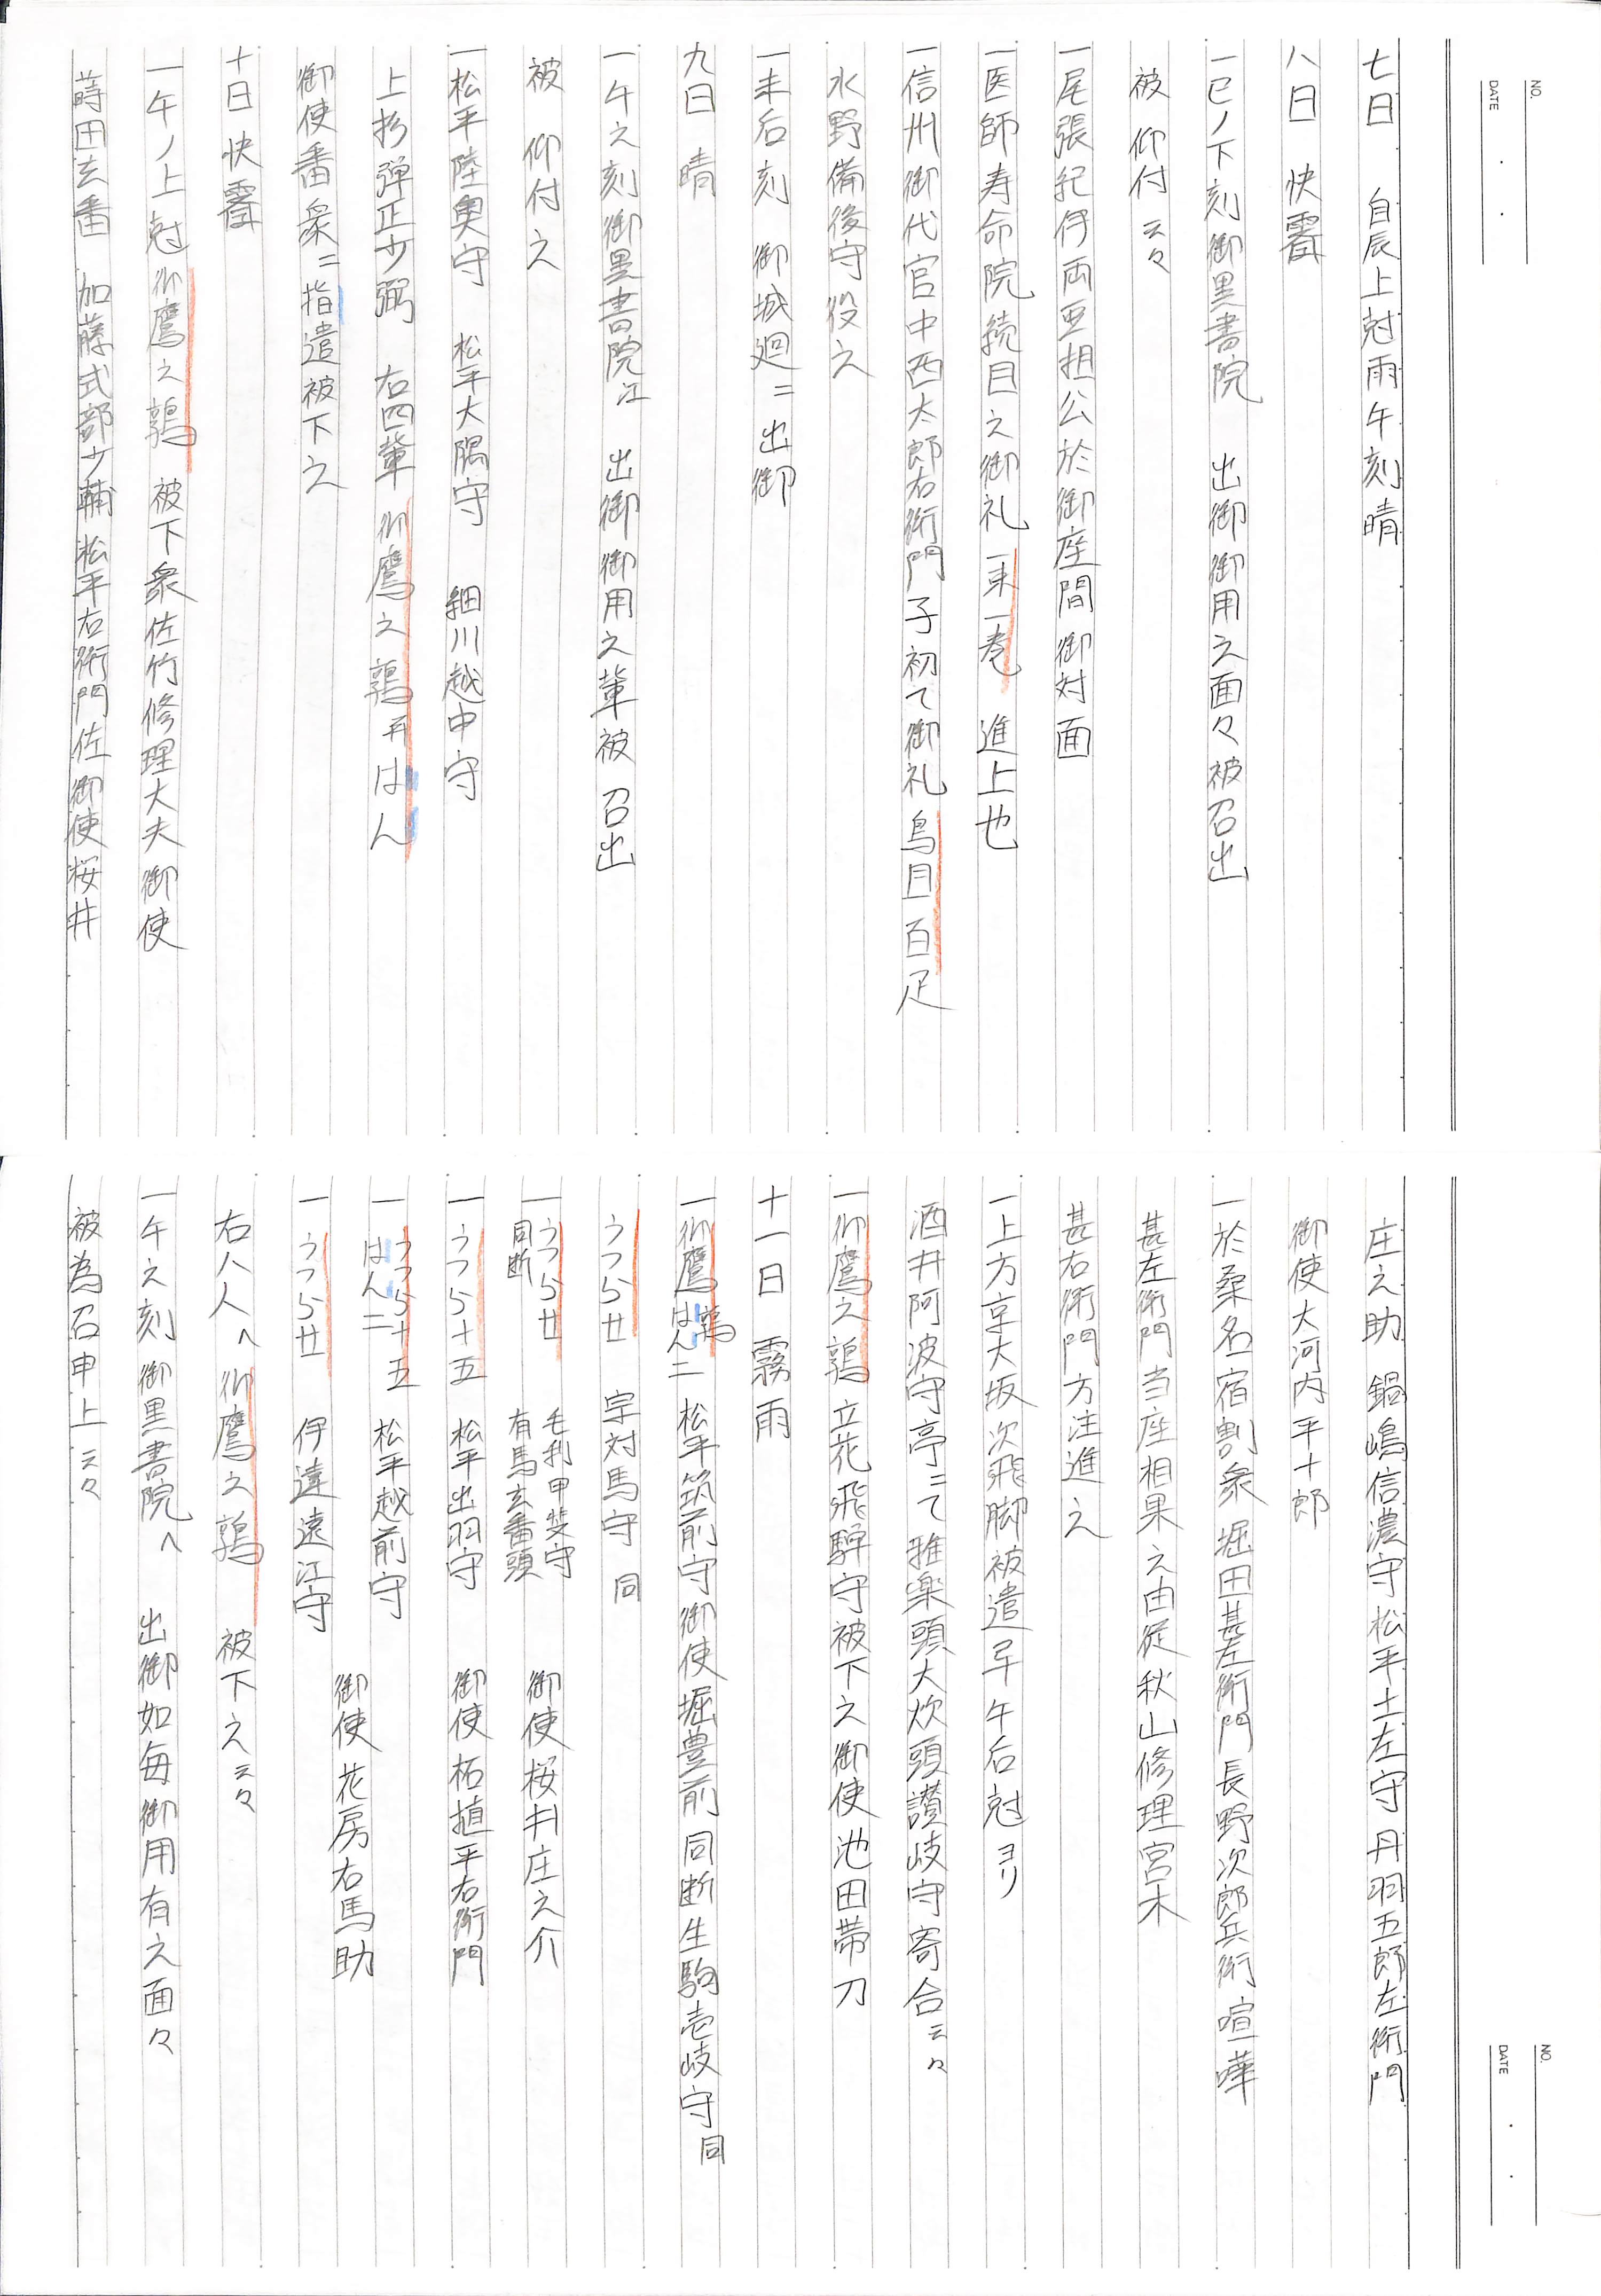 NO.
DATE
七日　自辰上尅雨午刻晴
八日　快霽
一巳ノ下刻御黒書院　出御御用之面々被召出
被　仰付云々
一尾張紀伊両亜相公於御座間御対面
一医師寿命院続目之御礼一束一巻　進上也
一信州御代官中西太郎右衛門子初て御礼鳥目百疋
水野備後守役之
一未后刻　御城廻ニ出御
九日　晴
一午之刻御黒書院江　出御御用之輩被　召出
被　仰付之
一松平陸奥守　松平大隅守　細川越中守
上杉弾正少弼　右四輩御鷹之鶉并はん
御使番衆ニ指遣被下之
十日　快霽
一午ノ上尅御鷹之鶉　被下衆佐竹修理大夫御使
蒔田玄番　加藤式部少輔松平右衛門佐御使桜井
NO.
DATE
庄之助　鍋嶋信濃守松平土左守丹羽五郎左衛門
御使大河内平十郎
一於桑名宿割衆堀田甚左衛門長野次郎兵衛喧嘩
甚左衛門当座相果之由従秋山修理宮木
甚右衛門方注進之
一上方京大坂次飛脚被遣早午后尅ヨリ
酒井阿波守亭ニて雅楽頭大炊頭讃岐守寄合云々
一御鷹之鶉立花飛騨守被下之御使池田帯刀
十一日　霧雨
一御鷹鶉はん二　松平筑前守御使堀豊前　同断生駒壱岐守同
うつら廿　宗対馬守　同
一うつら廿　同断　毛利甲斐守　有馬玄番頭　御使桜井庄之介
一うつら十五　松平出羽守　御使柘植平右衛門
一うつら十五　はん二　松平越前守　御使花房右馬助
一うつら廿　伊達遠江守
右八人へ御鷹之鶉　被下之云々
一午之刻御黒書院へ　出御如毎御用有之面々
被為召申上云々